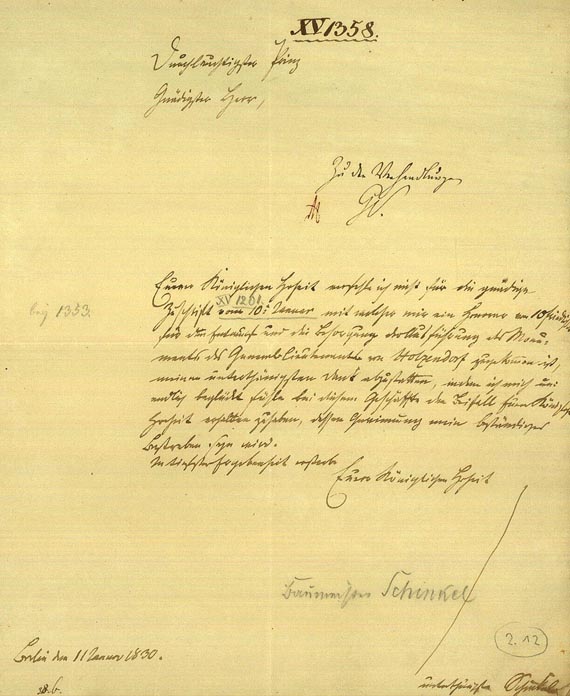 XV 1358.
Durchlauchtigster Prinz
Gnädigster Herr,
Zu den Verhandlungen
bey 1353.
Eurer Königlichen Hoheit verfehle ich nicht für die gnädige
XV 1201
Zuschrift vom 10t Januar mit welcher mir ein Honorar von 10
für den Entwurf und die Besorgung der Ausführung des Monu-
ments des Generallieutenants von Holzendorf zugekommen ist,
meinen unterthänigsten Dank abzustatten, indem ich mich un-
endlich beglückt fühle bei diesem Geschäfte den Beifall Eurer Königl
Hoheit erhalten zu haben, dessen Gewinnung mein beständiges
Bestreben seyn wird.
In tiefster Ergebenheit ersterbe
Eurer Königlichen Hoheit
Baumeister Schinkel
2.12
Berlin den 11 Januar 1830.
unterthänigster Schinkel